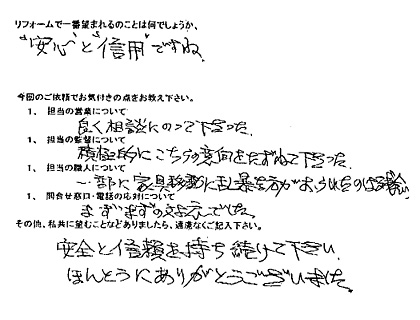 リフォームで一番望まれるのことは何でしょうか、
"安心"と"信用"ですね。
今回のご依頼でお気付きの点をお教え下さい。
1、 担当の営業について
良く相談にのって下さった。
1、 担当の監督について
積極的にこちらの意向をたずねて下さった。
1、 担当の職人について
一部に家具移動に乱暴な方がおられたのは残念
1、 問合せ窓口・電話の応対について
まずまずの対応でした。
その他、私共に望むことなどありましたら、遠慮なくご記入下さい。
安全と信頼を持ち続けて下さい。
ほんとうにありがとうございました。